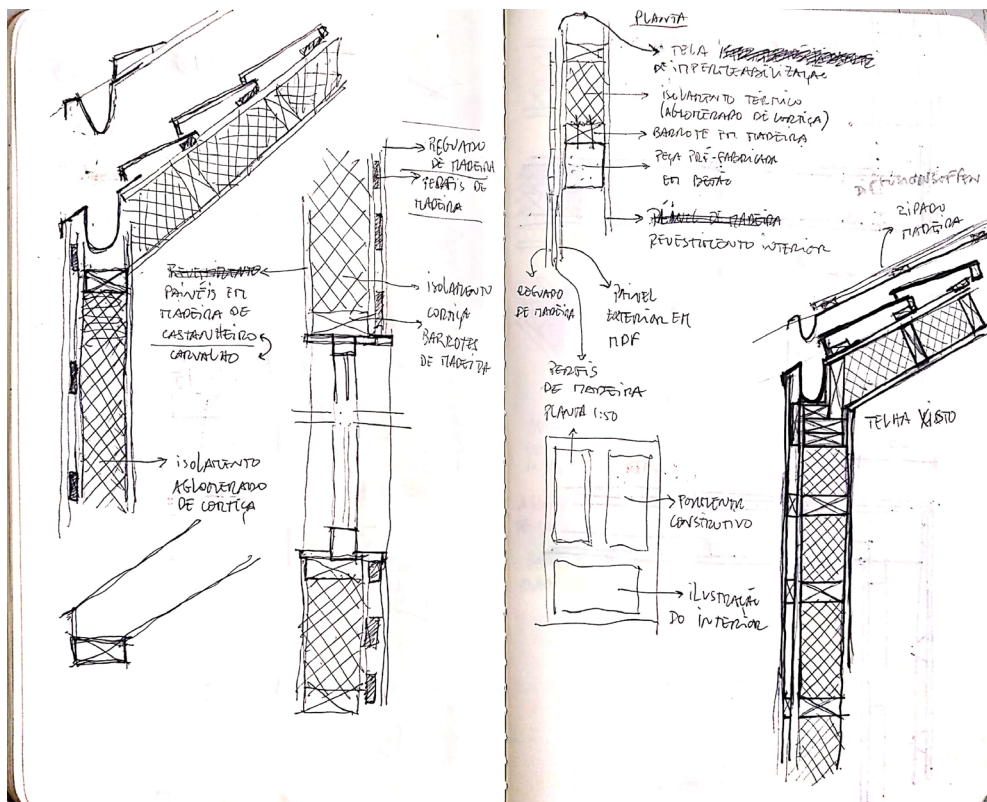 REGUADO
DE MADEIRA
PERFIS DE
MADEIRA
REVESTIMENTO
PAINÉIS EM
MADEIRA DE
CASTANHEIRO
CARVALHO
ISOLAMENTO
CORTIÇA
BARROTES
DE MADEIRA
ISOLAMENTO
AGLOMERADO
DE CORTIÇA
PLANTA
TELA
DE IMPERMEABILIZAÇÃO
ISOLAMENTO TÉRMICO
(AGLOMERADO DE CORTIÇA)
BARROTE EM MADEIRA
PEÇA PRÉ-FABRICADA
EM BETÃO
PAINEL DE MADEIRA
REVESTIMENTO INTERIOR
RIPADO
MADEIRA
REGUADO
DE MADEIRA
PAINEL
EXTERIOR EM
MDF
PERFIS
DE MADEIRA
PLANTA 1:50
TELHA XISTO
PORMENOR
CONSTRUTIVO
ILUSTRAÇÃO
DO INTERIOR